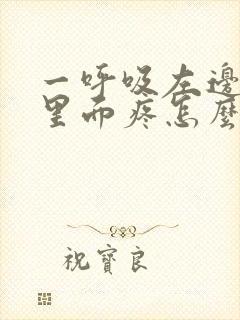 一呼吸左邊
里面疼怎麼
祝寶良